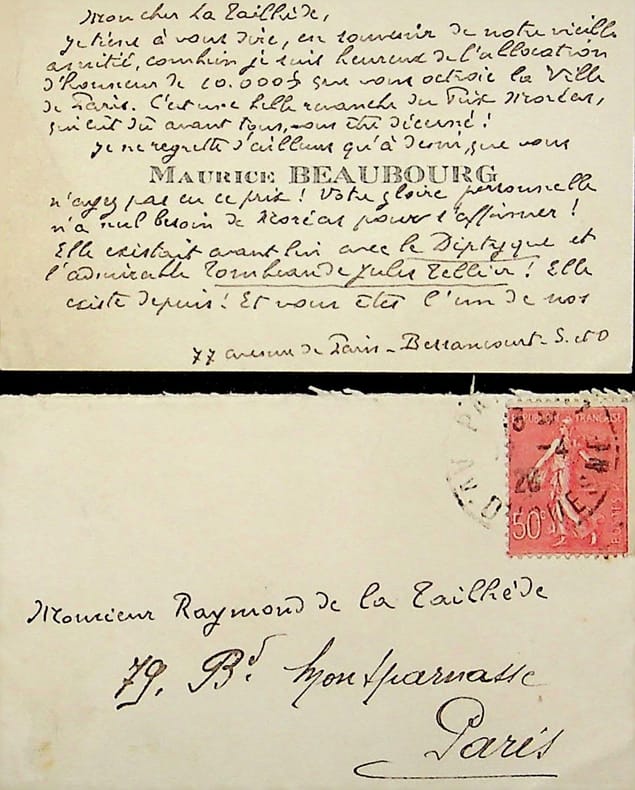 Mon cher La Tailhède,
Je tiens à vous dire, en souvenir de notre vieille
amitié, combien je suis heureux de l'allocation
d'honneur de 10.000f que vous octroie la Ville
de Paris. C'est une belle revanche du Prix Moréas,
qui eût dû avant tous, vous être décerné !
Je ne regrette d'ailleurs qu'à demi, que vous
MAURICE BEAUBOURG
n'ayez pas eu ce prix ! Votre gloire personnelle
n'a nul besoin de Moréas pour s'affirmer !
Elle existait avant lui avec le Diptyque et
l'admirable Tombeau de Jules Tellier ! Elle
existe depuis ! Et vous êtes l'un de nos
77 avenue de Paris - Bessancourt - S. et O
REPUBLIQUE FRANÇAISE
50c
Monsieur Raymond de la Tailhède
79. Bd. Montparnasse
Paris